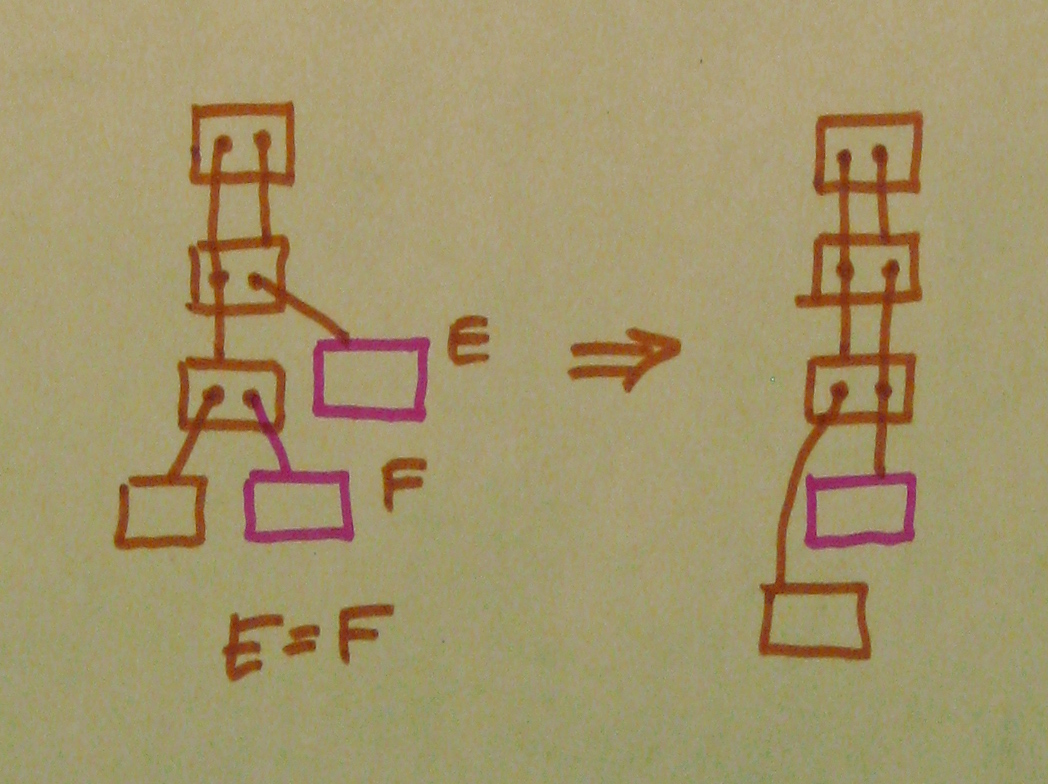 E
F
E=F